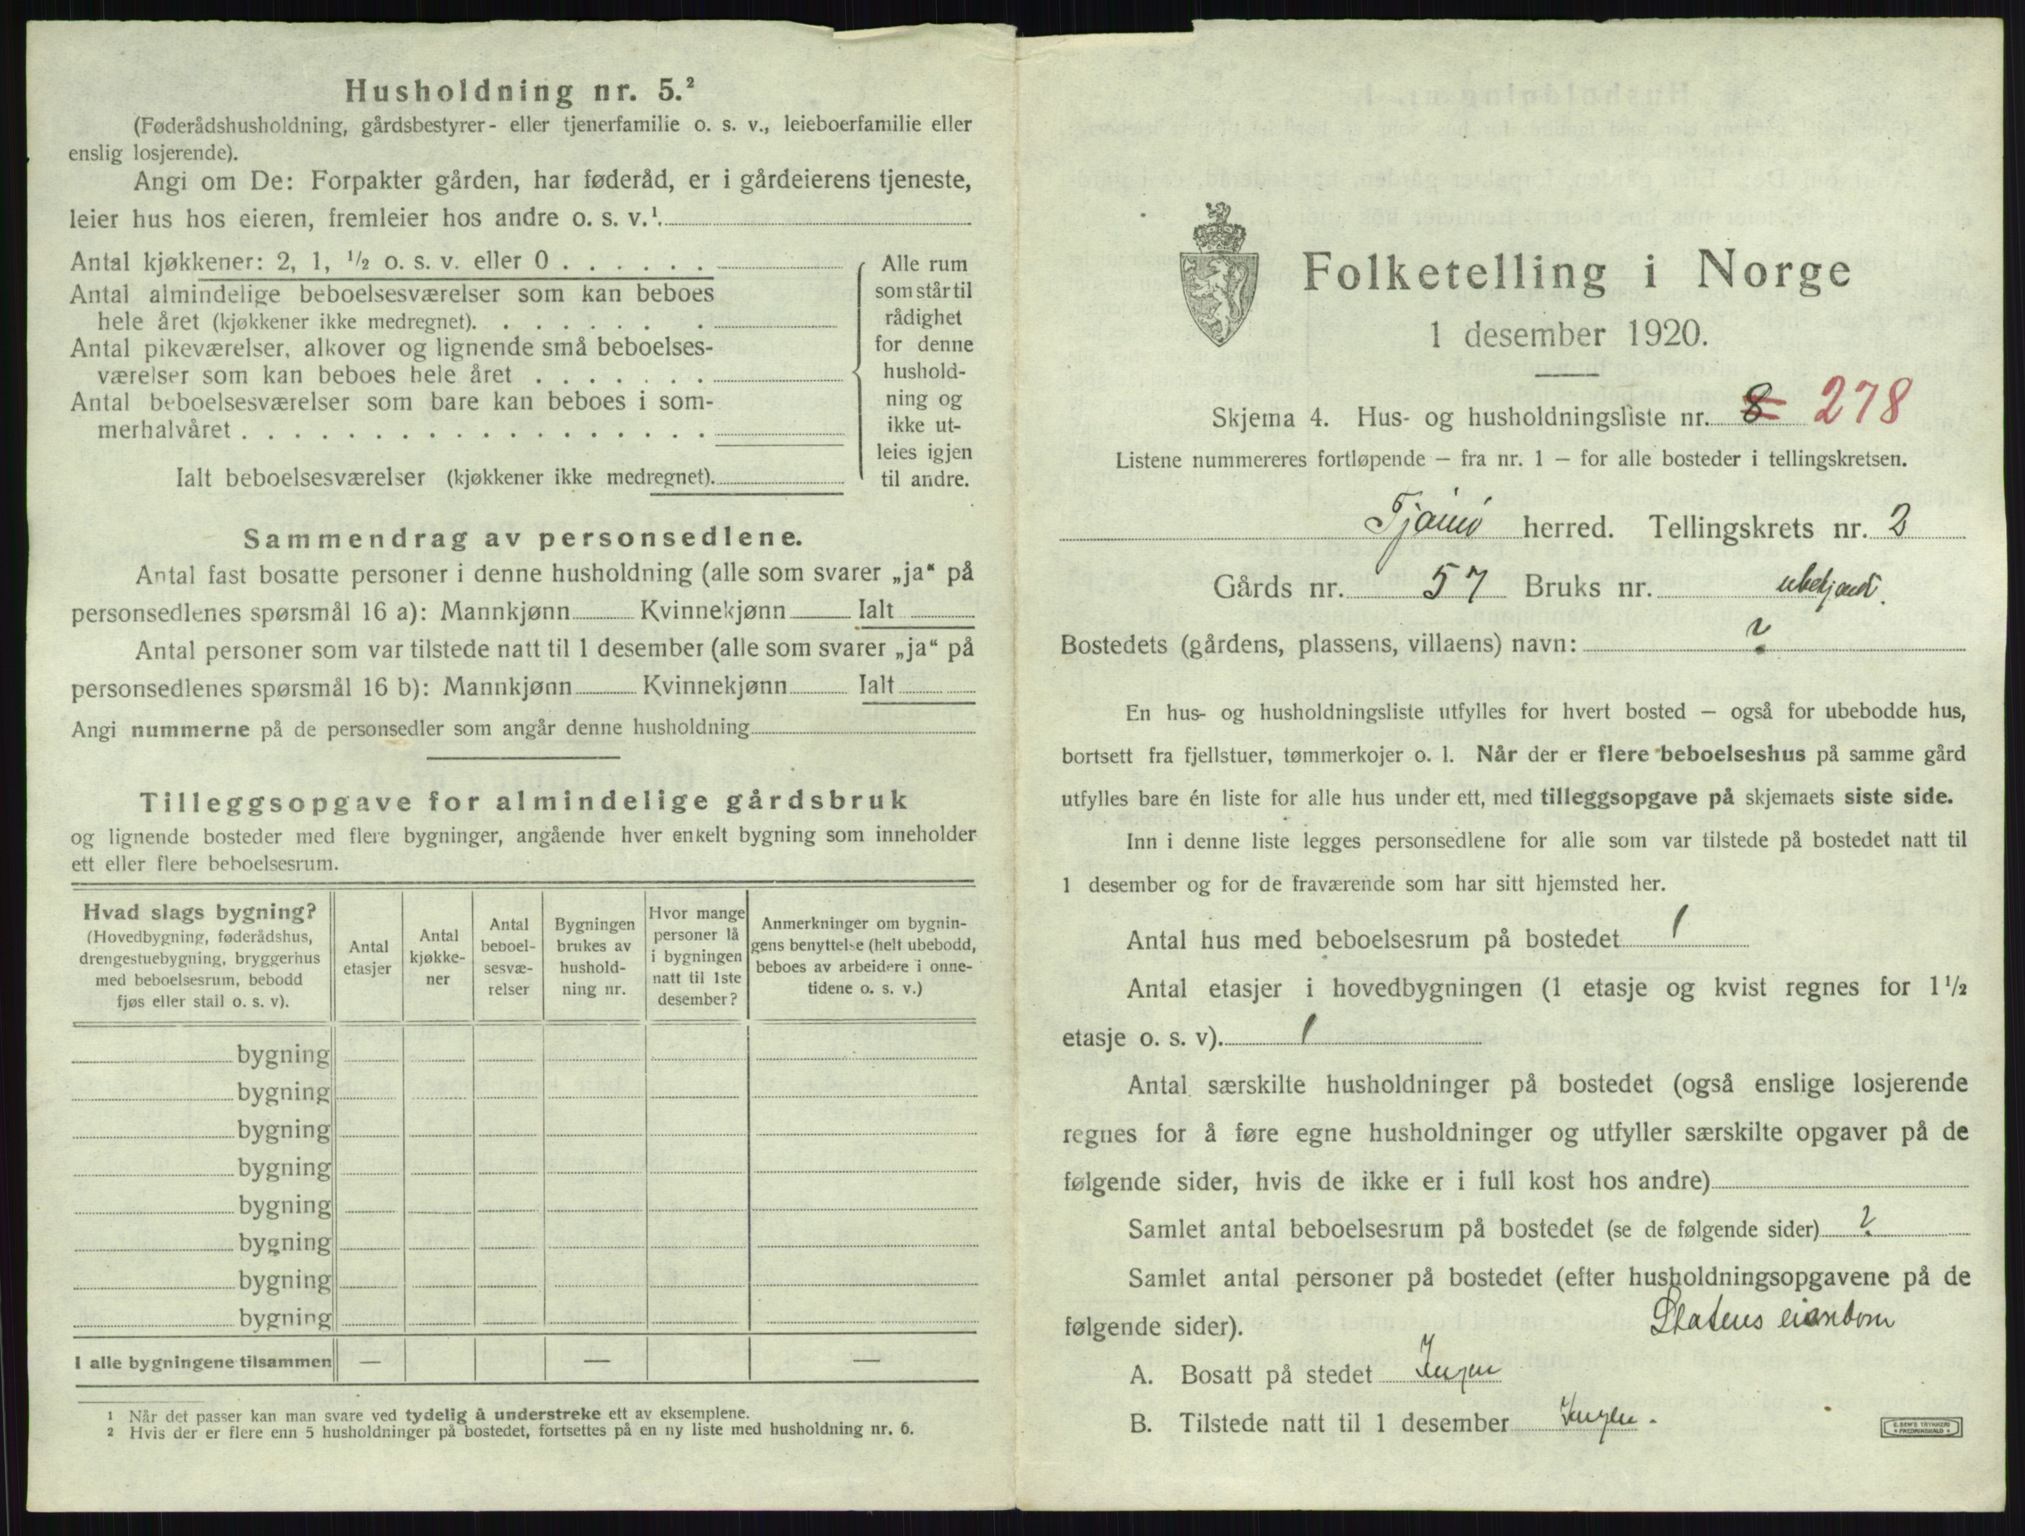 Husholdning nr. 5.²
(Føderådshusholdning, gårdsbestyrer- eller tjenerfamilie o. s. v., leieboerfamilie eller
enslig losjerende).
Angi om De: Forpakter gården, har føderåd, er i gårdeierens tjeneste,
leier hus hos eieren, fremleier hos andre o. s. v.¹
Antal kjøkkener: 2, 1, ½ o. s. v. eller 0 . . . . . .
Antal almindelige beboelsesværelser som kan beboes
hele året (kjøkkener ikke medregnet). . . . . . . .
Antal pikeværelser, alkover og lignende små beboelses-
værelser som kan beboes hele året . . . . . . .
Antal beboelsesværelser som bare kan beboes i som-
merhalvåret . . . . . . . . . . . . . . . . . .
Ialt beboelsesværelser (kjøkkener ikke medregnet).
Alle rum
som står til
rådighet
for denne
hushold-
ning og
ikke ut-
leies igjen
til andre.
Sammendrag av personsedlene.
Antal fast bosatte personer i denne husholdning (alle som svarer „ja“ på
personsedlenes spørsmål 16 a): Mannkjønn Kvinnekjønn Ialt
Antal personer som var tilstede natt til 1 desember (alle som svarer „ja“ på
personsedlenes spørsmål 16 b): Mannkjønn Kvinnekjønn Ialt
Angi nummerne på de personsedler som angår denne husholdning
Tilleggsopgave for almindelige gårdsbruk
og lignende bosteder med flere bygninger, angående hver enkelt bygning som inneholder
ett eller flere beboelsesrum.
Hvad slags bygning?
(Hovedbygning, føderådshus,
drengestuebygning, bryggerhus
med beboelsesrum, bebodd
fjøs eller stall o. s. v).
Antal
etasjer
Antal
kjøkke-
ner
Antal
beboel-
sesvæ-
relser
Bygningen
brukes av
hushold-
ning nr.
Hvor mange
personer lå
i bygningen
natt til 1ste
desember?
Anmerkninger om bygnin-
gens benyttelse (helt ubebodd,
beboes av arbeidere i onne-
tidene o. s. v.)
bygning
bygning
bygning
bygning
bygning
bygning
bygning
bygning
I alle bygningene tilsammen — — —
1 Når det passer kan man svare ved tydelig å understreke ett av eksemplene.
2 Hvis der er flere enn 5 husholdninger på bostedet, fortsettes på en ny liste med husholdning nr. 6.
Folketelling i Norge
1 desember 1920.
Skjema 4. Hus- og husholdningsliste nr. 8 278
Listene nummereres fortløpende – fra nr. 1 – for alle bosteder i tellingskretsen.
Tjømø herred. Tellingskrets nr. 2
Gårds nr. 57 Bruks nr. ubekjendt.
Bostedets (gårdens, plassens, villaens) navn: ?
En hus- og husholdningsliste utfylles for hvert bosted – også for ubebodde hus,
bortsett fra fjellstuer, tømmerkojer o. l. Når der er flere beboelseshus på samme gård
utfylles bare én liste for alle hus under ett, med tilleggsopgave på skjemaets siste side.
Inn i denne liste legges personsedlene for alle som var tilstede på bostedet natt til
1 desember og for de fraværende som har sitt hjemsted her.
Antal hus med beboelsesrum på bostedet 1
Antal etasjer i hovedbygningen (1 etasje og kvist regnes for 1½
etasje o. s. v). 1
Antal særskilte husholdninger på bostedet (også enslige losjerende
regnes for å føre egne husholdninger og utfyller særskilte opgaver på de
følgende sider, hvis de ikke er i full kost hos andre)
Samlet antal beboelsesrum på bostedet (se de følgende sider) ?
Samlet antal personer på bostedet (efter husholdningsopgavene på de
følgende sider). Statens eiendom
A. Bosatt på stedet Ingen
B. Tilstede natt til 1 desember Ingen.
E. SEM'S TRYKKERI
FREDRIKSHALD